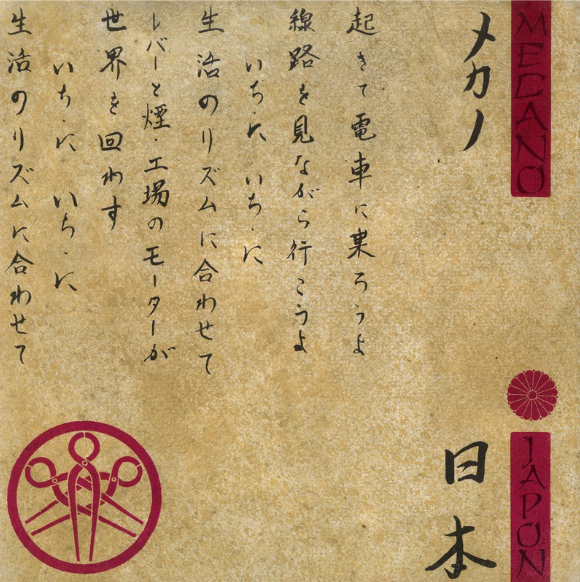 MECANO
メカノ
起きて電車に乗ろうよ
線路を見ながら行こうよ
いち・に いち・に
生活のリズムに合わせて
レバーと煙・工場のモーターが
世界を回わす
いち・に いち・に
生活のリズムに合わせて
JAPON
日本